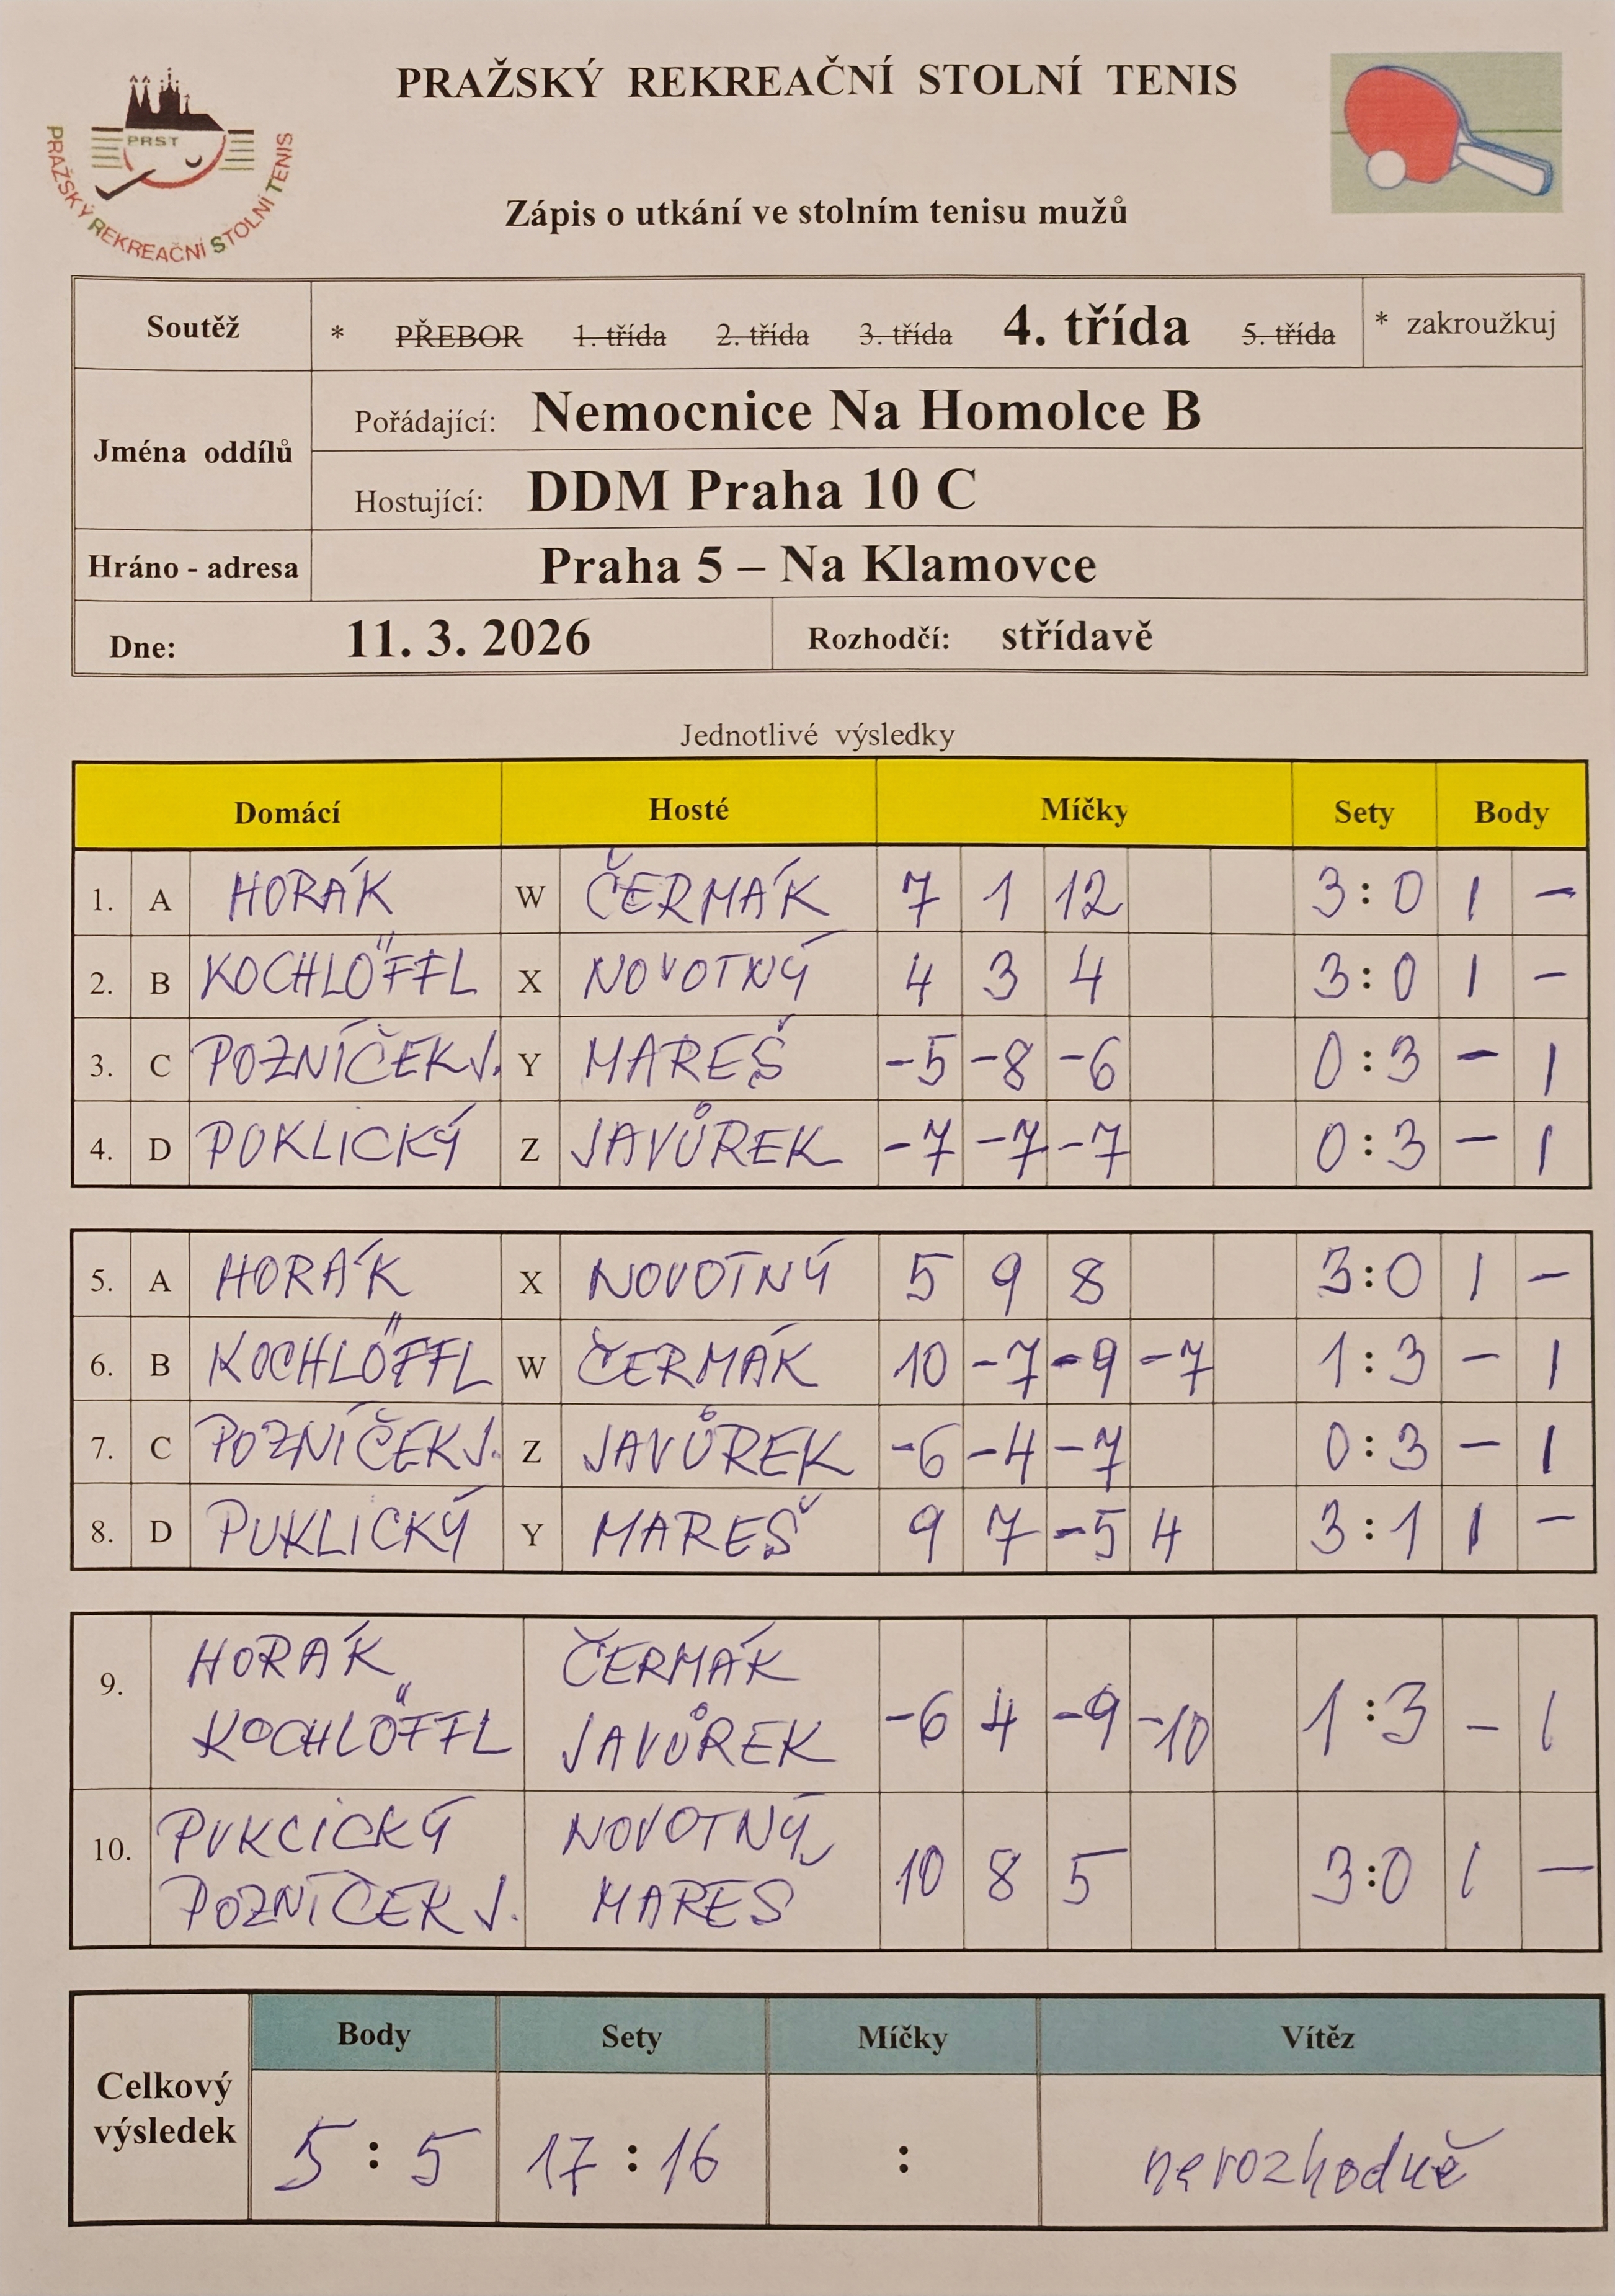 PRAŽSKÝ REKREAČNÍ STOLNÍ TENIS
PRST
PRAŽSKÝ REKREAČNÍ STOLNÍ TENIS
Zápis o utkání ve stolním tenisu mužů
Soutěž * PŘEBOR 1. třída 2. třída 3. třída 4. třída 5. třída * zakroužkuj
Jména oddílů
Pořádající: Nemocnice Na Homolce B
Hostující: DDM Praha 10 C
Hráno - adresa Praha 5 – Na Klamovce
Dne: 11. 3. 2026 Rozhodčí: střídavě
Jednotlivé výsledky
Domácí Hosté Míčky Sety Body
1. A HORÁK W ČERMÁK 7 1 12 3:0 1 -
2. B KOCHLÖFFL X NOVOTNÝ 4 3 4 3:0 1 -
3. C POZNÍČEK J. Y MAREŠ -5 -8 -6 0:3 - 1
4. D POKLICKÝ Z JAVŮREK -7 -7 -7 0:3 - 1
5. A HORÁK X NOVOTNÝ 5 9 8 3:0 1 -
6. B KOCHLÖFFL W ČERMÁK 10 -7 -9 -7 1:3 - 1
7. C POZNÍČEK J. Z JAVŮREK -6 -4 -7 0:3 - 1
8. D PUKLICKÝ Y MAREŠ 9 7 -5 4 3:1 1 -
9. HORÁK ČERMÁK
KOCHLÖFFL JAVŮREK -6 4 -9 -10 1:3 - 1
10. PUKLICKÝ NOVOTNÝ
POZNÍČEK J. MAREŠ 10 8 5 3:0 1 -
Celkový výsledek
Body Sety Míčky Vítěz
5:5 17:16 : nerozhodně